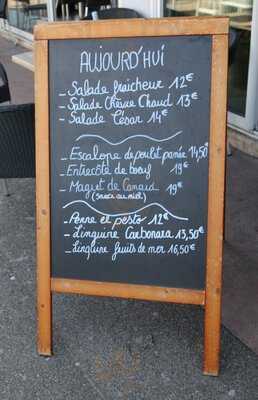 AUJOURD'HUI
_ Salade fraicheur 12€
_ Salade Chèvre Chaud 13€
_ Salade César 14€
_ Escalope de poulet panée 14,50
_ Entrecôte de boeuf 19€
_ Magret de Canard 19€
(sauce au miel)
_ Penne et pesto 12€
_ Linguine Carbonara 13,50€
_ Linguine fruits de mer 16,50€